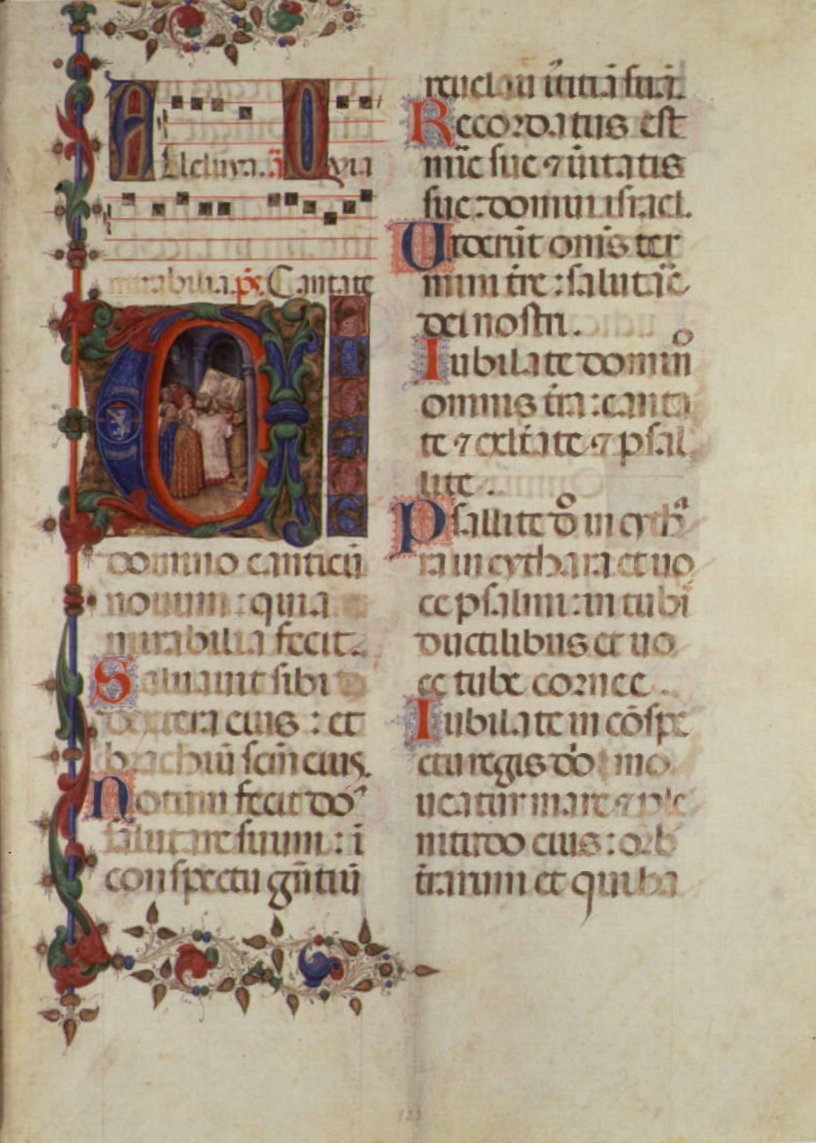 Alleluya. ā Quia
mirabilia. pš. Cantate
C
domino canticū
novum : quia
mirabilia fecit.
Salvavit sibi
dextera eius : et
brachiū scm̄ eius.
Notum fecit dō
salutare suum : ī
conspectu gn̄tiū
revelavit iūticiā suā.
Recordatus est
mīe sue ⁊ ūitatis
sue : domui israel.
Viderūt om̄s ter
mini tr̄e : salutāe
dei nostri.
Iubilate domino
omnis tr̄a : canta
te ⁊ exltāte ⁊ psal
lite.
Psallite dō in cyth
ra in cythara et vo
ce psalmi : in tubi
ductilibus et vo
ce tube cornee.
Iubilate in cōspe
ctu regis dō mo
veatur mare ⁊ ple
nitudo eius : orb
tr̄arum et qui ha